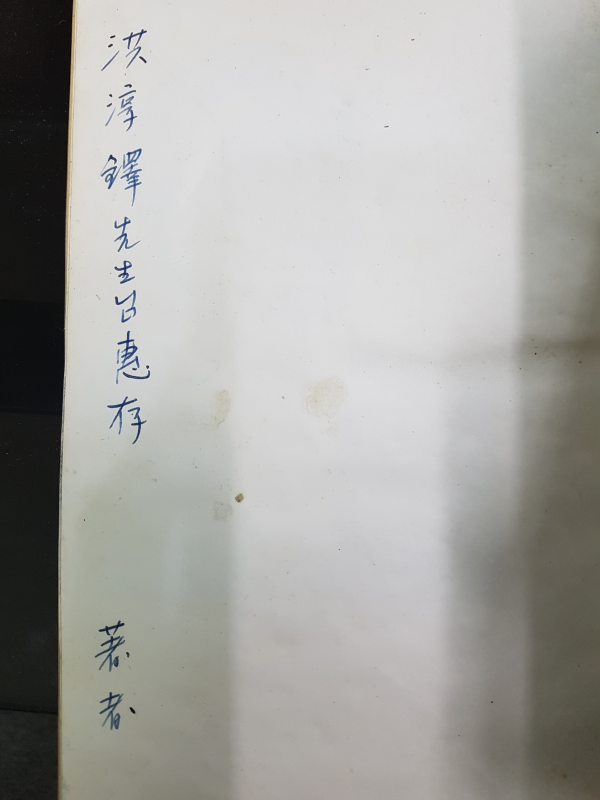 洪淳鐸先生台惠存
著者